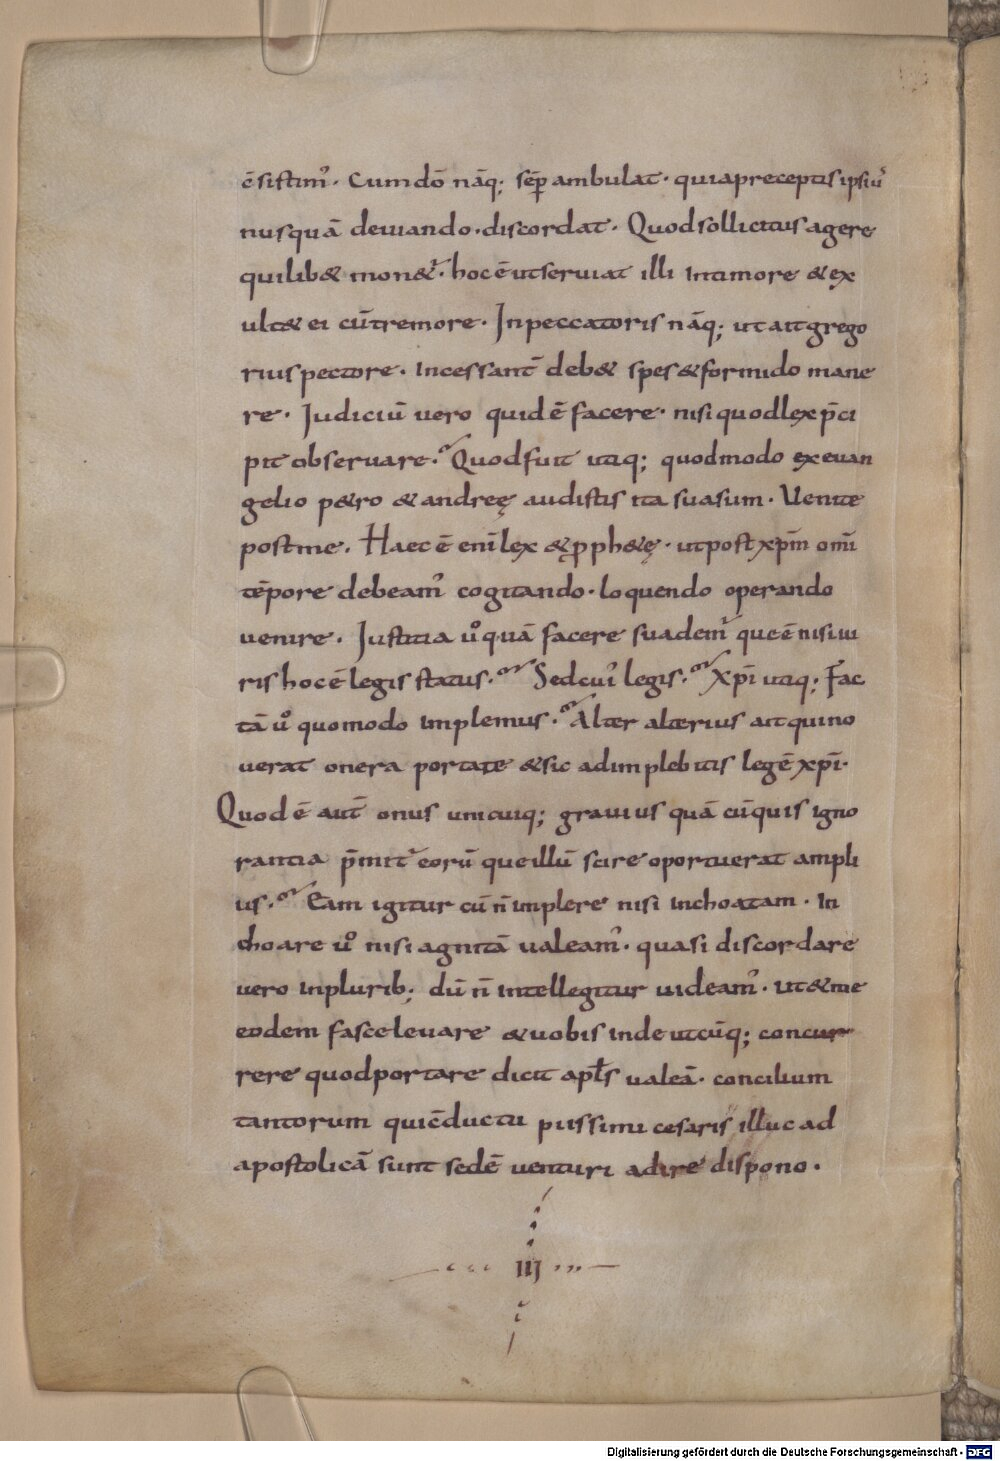 ē sistim᾽. Cum dō nāq; sēp ambulat. quia preceptis ipsiu᾽
nusquā deuiando. discordat. Quod sollicitus agere
quilib& mon&᾽. hoc ē ut seruiat illi In timore & ex
ult& ei cū tremore. In peccatoris nāq; ut ait grego
rius pectore. incessant̄ deb& spes & formido mane
re. Judiciū uero quid ē facere. nisi quod lex p̄ci
pit obseruare. Quod fuit utiq; quodmodo ex euan
gelio p&ro & andreę audistis ita suasum. Uenite
post me. Haec ē eni̅ lex & proph&ę. ut post xp̄m omi̅
tēpore debeam᾽ cogitando. loquendo operando
uenire. Justitia ůo quā facere suadem᾽ que ē nisi iu
ris hoc ē legis status. Sed cui᾽ legis. Xp̄i utiq; Fac
tā ůo quomodo implemus. Alter alterius ait qui no
uerat onera portate & sic adimplebitis legē xp̄i.
Quod ē aut̄ onus unicuiq; grauius quā cū quis igno
rantia p̄mit᾽ eorū que illū scire oportuerat ampli
us. Eam igitur cū n̄ implere nisi inchoatam. In
choare ůo nisi agnitā ualeam᾽. quasi discordare
uero in plurib; dū n̄ intellegitur uideam᾽. ut & me
eodem fasce leuare & uobis inde utcūq; concur
rere quod portare dicit apl̄s ualeā. concilium
tantorum qui c̄ductu piissimi cesaris illuc ad
apostolicā sunt sedē uenturi adire dispono.
III
Digitalisierung gefördert durch die Deutsche Forschungsgemeinschaft - DFG